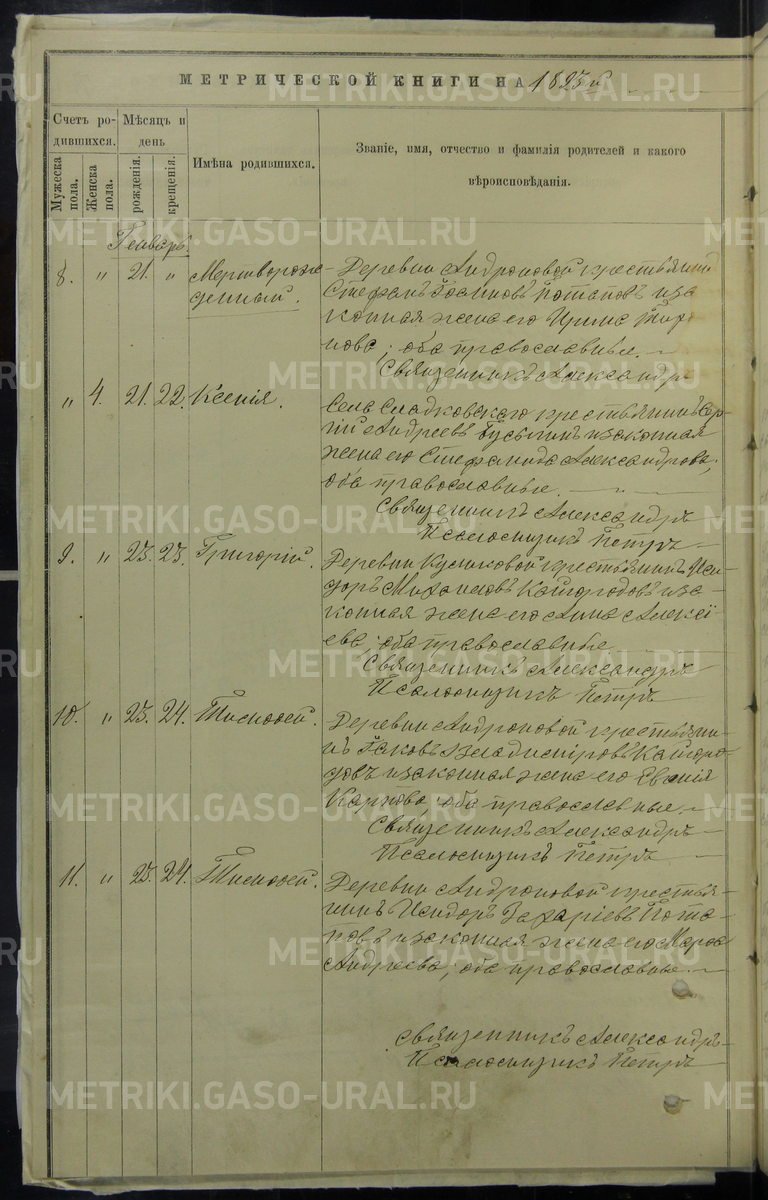 МЕТРИЧЕСКОЙ КНИГИ НА
Счетъ ро-
дившихся.
Мѣсяцъ и
день
Мужеска
пола.
Женска
пола.
рожденія.
крещенія.
Имѣна родившихся.
Званіе, имя, отчество и фамилія родителей и какого
вѣроисповѣданія.
Генварь.
8. " 21. " Мертворож-
денный.
Деревни Андроновой крестьянинъ
Стефанъ Іоанновъ Потаповъ и за-
конная жена его Ирина
нова; оба православные.
Священникъ Александръ
" 4. 21. 22. Ксенія.
Села Сладковскаго крестьянинъ Сер-
гій Андреевъ и законная
жена его Стефанида Александрова;
оба православные.
Священникъ Александръ
Псаломщикъ Петръ
9. " 23. 23. Григорій.
Деревни крестьянинъ Иси-
доръ Михаиловъ Кайгородовъ и за-
конная жена его Анна Алексі-
ева; оба православные.
Священникъ Александръ
Псаломщикъ Петръ
10. " 23. 24. Тимофей.
Деревни Андроновой крестьяни-
нъ Іаковъ Владиміровъ Кайгоро-
довъ и законная жена его
Карпова; оба православные.
Священникъ Александръ
Псаломщикъ Петръ
11. " 23. 24. Тимофей.
Деревни Андроновой крестья-
нинъ Исидоръ Захаріевъ Пота-
повъ и законная жена его
Андреева; оба православные.
Священникъ Александръ
Псаломщикъ Петръ
METRIKI.GASO-URAL.RU